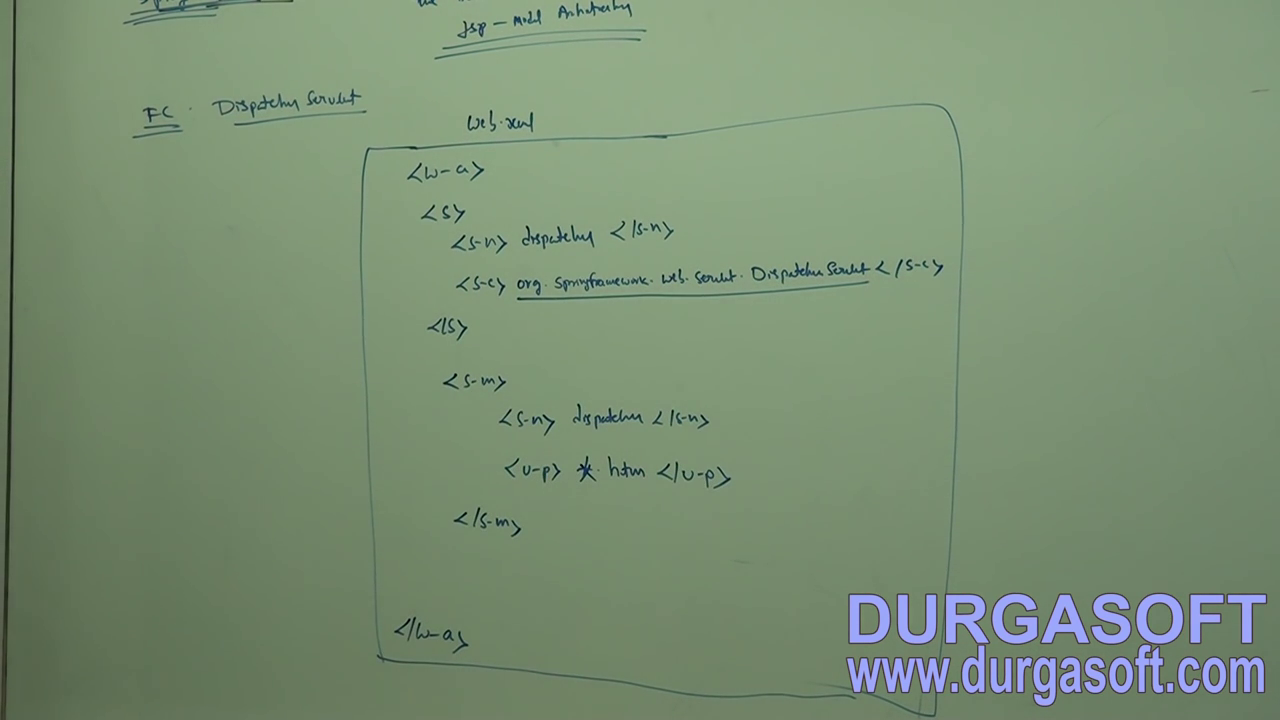 JSP - Model Architecture
FC. Dispatcher Servlet
web.xml
<w-a>
<s>
<s-n> dispatcher </s-n>
<s-c> org.springframework.web.servlet.DispatcherServlet </s-c>
</s>
<s-m>
<s-n> dispatcher </s-n>
<u-p> *.htm </u-p>
</s-m>
</w-a>
DURGASOFT
www.durgasoft.com